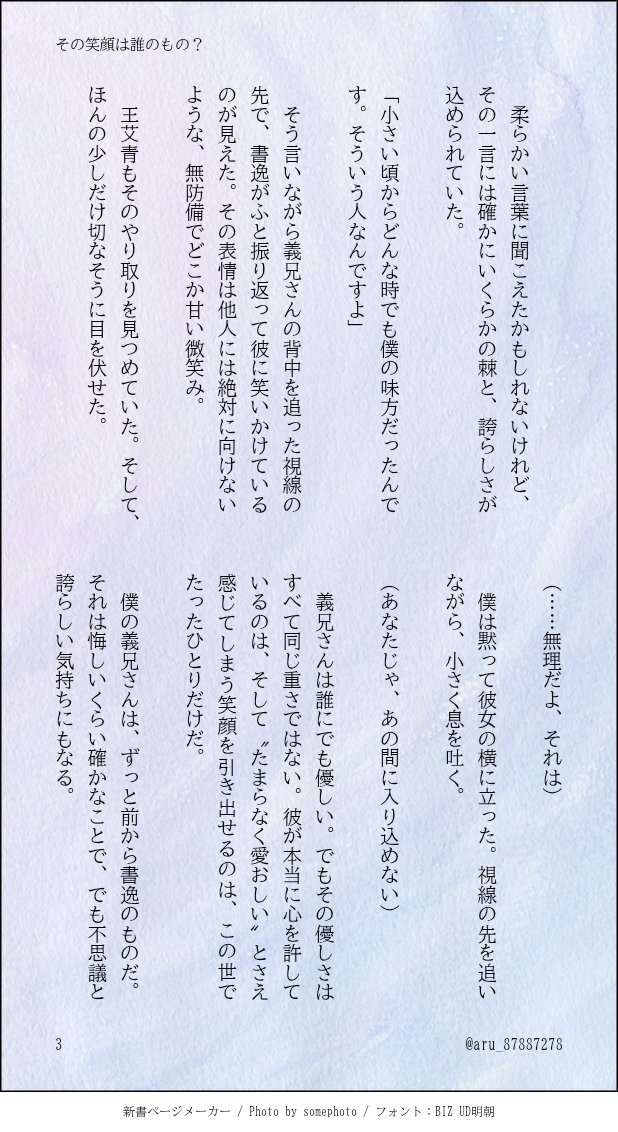 その笑顔は誰のもの?
　柔らかい言葉に聞こえたかもしれないけれど、
その一言には確かにいくらかの棘と、誇らしさが
込められていた。
「小さい頃からどんな時でも僕の味方だったんで
す。そういう人なんですよ」
　そう言いながら義兄さんの背中を追った視線の
先で、書逸がふと振り返って彼に笑いかけている
のが見えた。その表情は他人には絶対に向けない
ような、無防備でどこか甘い微笑み。
　王艾青もそのやり取りを見つめていた。そして、
ほんの少しだけ切なそうに目を伏せた。
(……無理だよ、それは)
　僕は黙って彼女の横に立った。視線の先を追い
ながら、小さく息を吐く。
(あなたじゃ、あの間に入り込めない)
　義兄さんは誰にでも優しい。でもその優しさは
すべて同じ重さではない。彼が本当に心を許して
いるのは、そして〝たまらなく愛おしい〟とさえ
感じてしまう笑顔を引き出せるのは、この世で
たったひとりだけだ。
　僕の義兄さんは、ずっと前から書逸のものだ。
それは悔しいくらい確かなことで、でも不思議と
誇らしい気持ちにもなる。
3
@aru_87887278
新書ページメーカー / Photo by somephoto / フォント:BIZ UD明朝